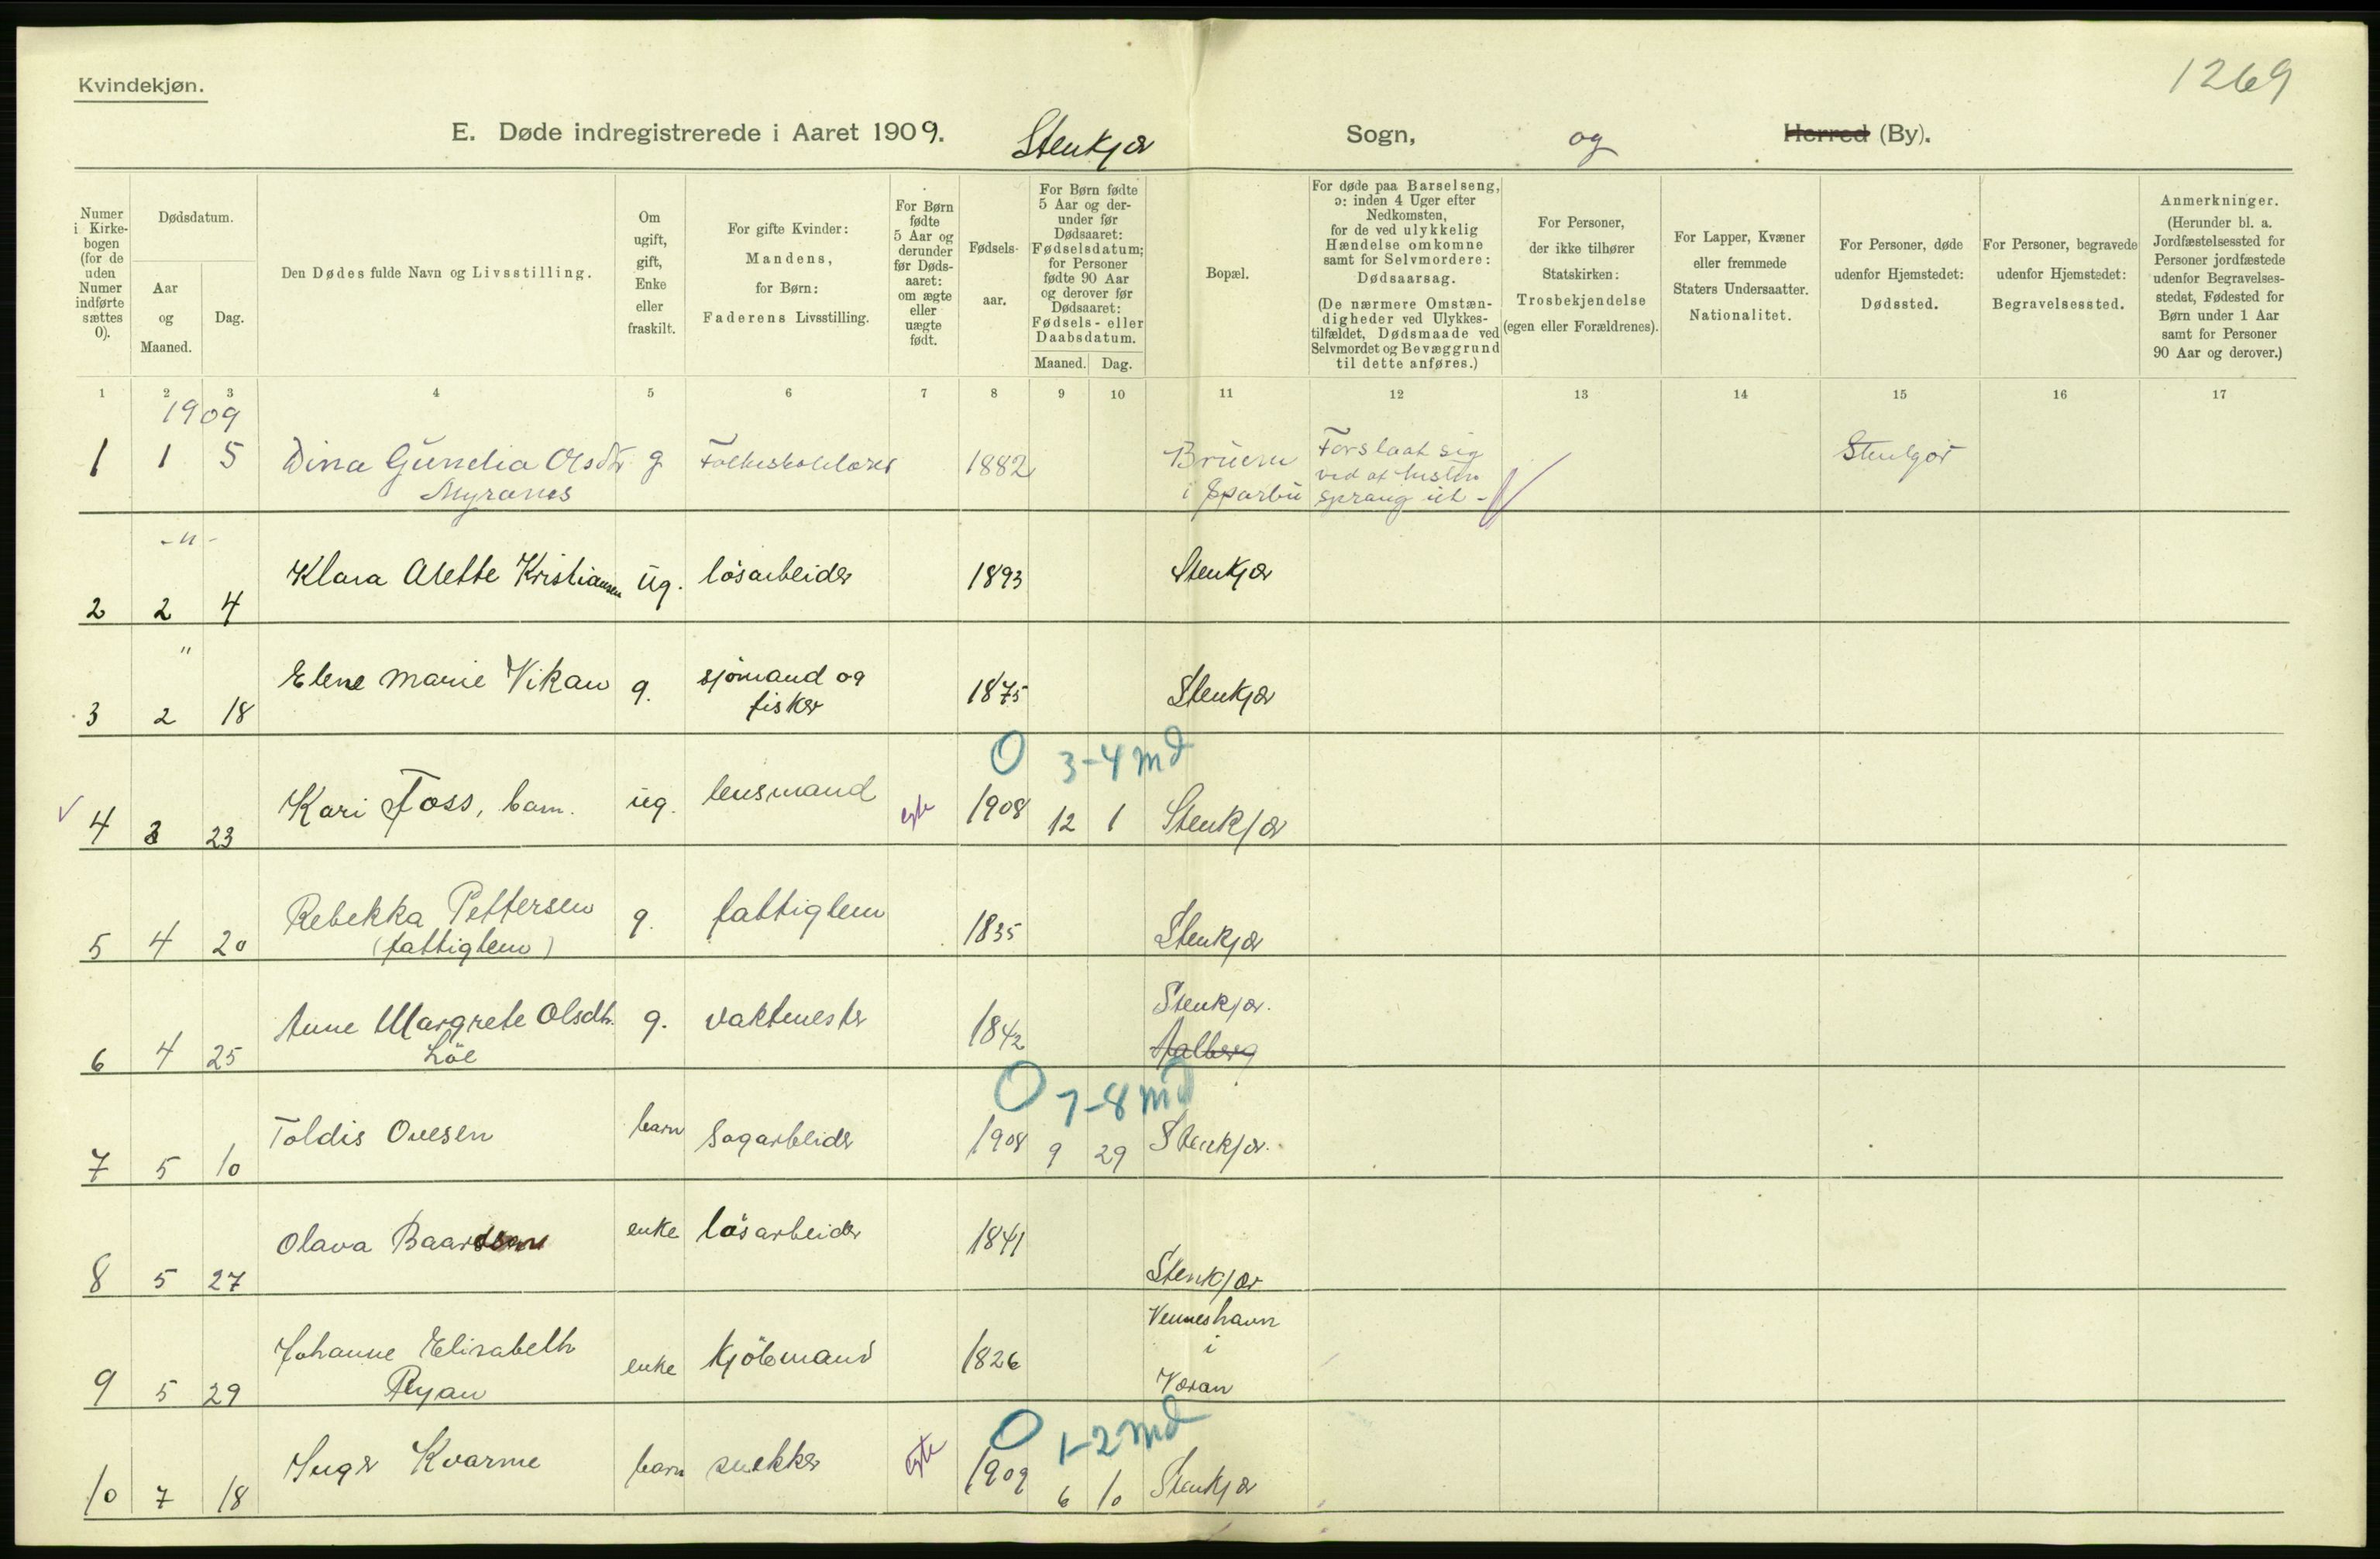 Kvindekjøn.
1269
E. Døde indregistrerede i Aaret 1909. Stenkjær Sogn, og Herred (By).
Numer i Kirkebogen (for de uden Numer indførte sættes 0).
Dødsdatum.
Aar og Maaned.
Dag.
Den Dødes fulde Navn og Livsstilling.
Om ugift, gift, Enke eller fraskilt.
For gifte Kvinder: Mandens, for Børn: Faderens Livsstilling.
For Børn fødte 5 Aar og derunder før Dødsaaret: om ægte eller uægte født.
Fødselsaar.
For Børn fødte 5 Aar og derunder før Dødsaaret: Fødselsdatum; for Personer fødte 90 Aar og derover før Dødsaaret: Fødsels- eller Daabsdatum.
Maaned. Dag.
Bopæl.
For døde paa Barselseng, ɔ: inden 4 Uger efter Nedkomsten, for de ved ulykkelig Hændelse omkomne samt for Selvmordere: Dødsaarsag.
(De nærmere Omstændigheder ved Ulykkestilfældet, Dødsmaade ved Selvmordet og Bevæggrund til dette anføres.)
For Personer, der ikke tilhører Statskirken: Trosbekjendelse (egen eller Forældrenes).
For Lapper, Kvæner eller fremmede Staters Undersaatter. Nationalitet.
For Personer, døde udenfor Hjemstedet: Dødssted.
For Personer, begravede udenfor Hjemstedet: Begravelsessted.
Anmerkninger.
(Herunder bl. a. Jordfæstelsessted for Personer jordfæstede udenfor Begravelsesstedet, Fødested for Børn under 1 Aar samt for Personer 90 Aar og derover.)
1 2 3 4 5 6 7 8 9 10 11 12 13 14 15 16 17
1909
1 1 5 Dina Gunelia Olsdtr g. Folkeskolelærer 1882 Bruem Forslaat sig Stenkjær
Myranes i Sparbu ved at hesten
sprang ut -
-"-
2 2 4 Klara Alette Kristiansen ug. løsarbeider 1893 Stenkjær
"
3 2 18 Elene Marie Vikan g. sjømand og fisker 1875 Stenkjær
0 3-4 md
4 3 23 Kari Foss, barn. ug. lensmand egte 1908 12 1 Stenkjær
5 4 20 Rebekka Pettersen g. fattiglem 1835 Stenkjær
(fattiglem)
6 4 25 Anne Margrete Olsdtr. g. vaktmester 1842 Stenkjær.
Löe Aalberg
0 7-8 md
7 5 10 Toldis Ovesen barn sagarbeider 1908 9 29 Stenkjær.
8 5 27 Olava Baardsen enke løsarbeider 1841 Stenkjær
9 5 29 Johanne Elisabeth enke kjøbmand 1826 Venneshavn
Ryan i
Væran
0 1-2 md
10 7 18 Inger Kvarme barn snekker egte 1909 6 10 Stenkjær